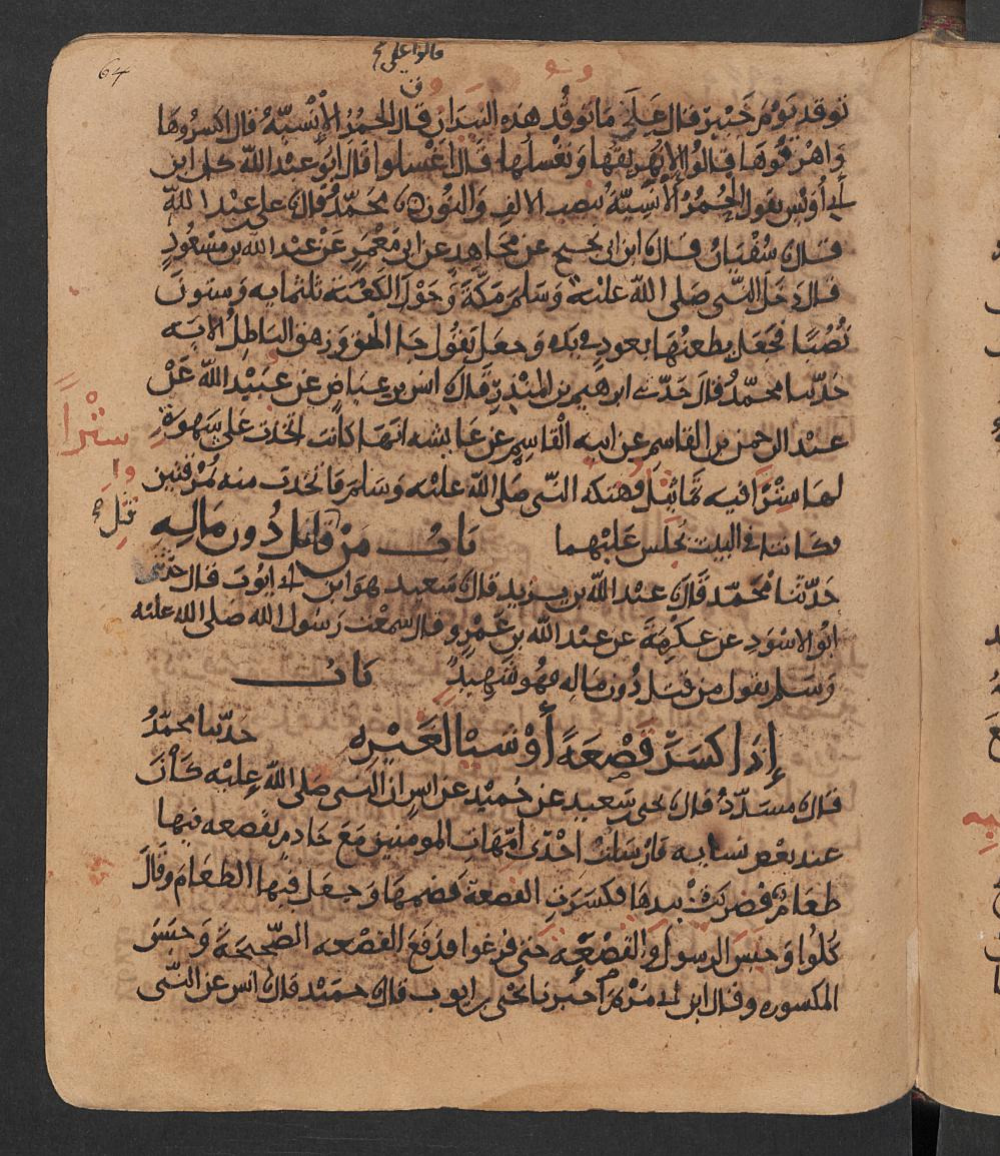 64
قالوا على
توقد يوم خيبر قال على ما توقد هذه النيران قال الحمر الأنسية قال اكسروها
واهرقوها قالوا الا نهريقها ونغسلها قال اغسلوا قال ابو عبد الله كان ابن
ابى اويس يقول الحمر الأنسية بنصب الالف والنون محمد قال على عبد الله
قال سفيان قال ابن ابى نجيح عن مجاهد عن ابى معمر عن عبد الله بن مسعود
قال دخل النبى صلى الله عليه وسلم مكة وحول الكعبة ثلثمايه وستون
نصبا فجعل يطعنها بعود فى يده وجعل يقول جا الحق وزهق الباطل الايه
حدثنا محمد قال حدثنى ابرهيم بن المنذر قال انس بن عياض عن عبيد الله عن
عبد الرحمن بن القاسم عن ابيه القاسم عن عايشه انها كانت اتخذت على سهوة
سترا
لها سترا فيه تماثيل فهتكه النبى صلى الله عليه وسلم فاتخذت منه نمرقتين
فكانتا فى البيت يجلس عليهما باب من قاتل دون ماله
قتل
حدثنا محمد قال عبد الله بن يزيد قال سعيد هو ابن ابى ايوب قال حدثنى
ابو الاسود عن عكرمة عن عبد الله بن عمرو قال سمعت رسول الله صلى الله عليه
وسلم يقول من قتل دون ماله فهو شهيد باب
إذا كسر قصعة أو شيا لغيره حدثنا محمد
قال مسدد قال يحيى بن سعيد عن حميد عن انس ان النبى صلى الله عليه كان
عند بعض نسايه فارسلت احدى امهات المومنين مع خادم بقصعه فيها
طعام فضربت بيدها فكسرت القصعة فضمها وجعل فيها الطعام وقال
كلوا وحبس الرسول والقصعه حتى فرغوا فدفع القصعه الصحيحة وحبس
المكسوره وقال ابن ابى مريم اخبرنا يحيى بن ايوب قال حميد قال انس عن النبى